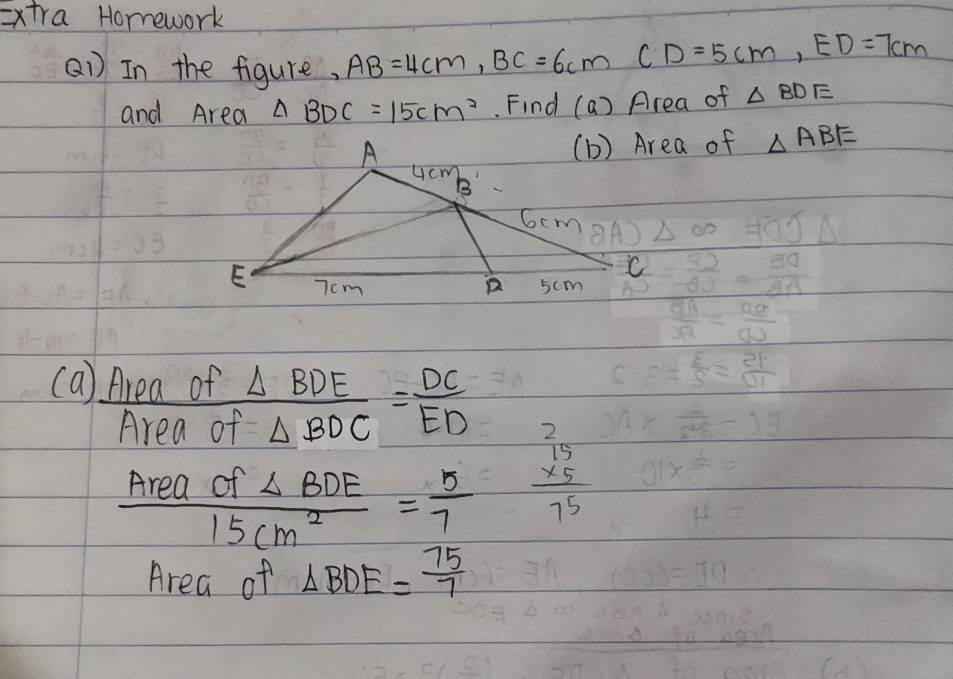 Extra Homework
Q1) In the figure, AB=4cm, BC=6cm CD=5cm, ED=7cm
and Area △ BDC = 15cm². Find (a) Area of △ BDE
(b) Area of △ ABE
A
4cm
B
6cm
E
7cm
D
5cm
C
(a) Area of △ BDE / Area of △ BDC = DC / ED
Area of △ BDE / 15cm² = 5/7
2
15
×5
75
Area of △BDE = 75/7